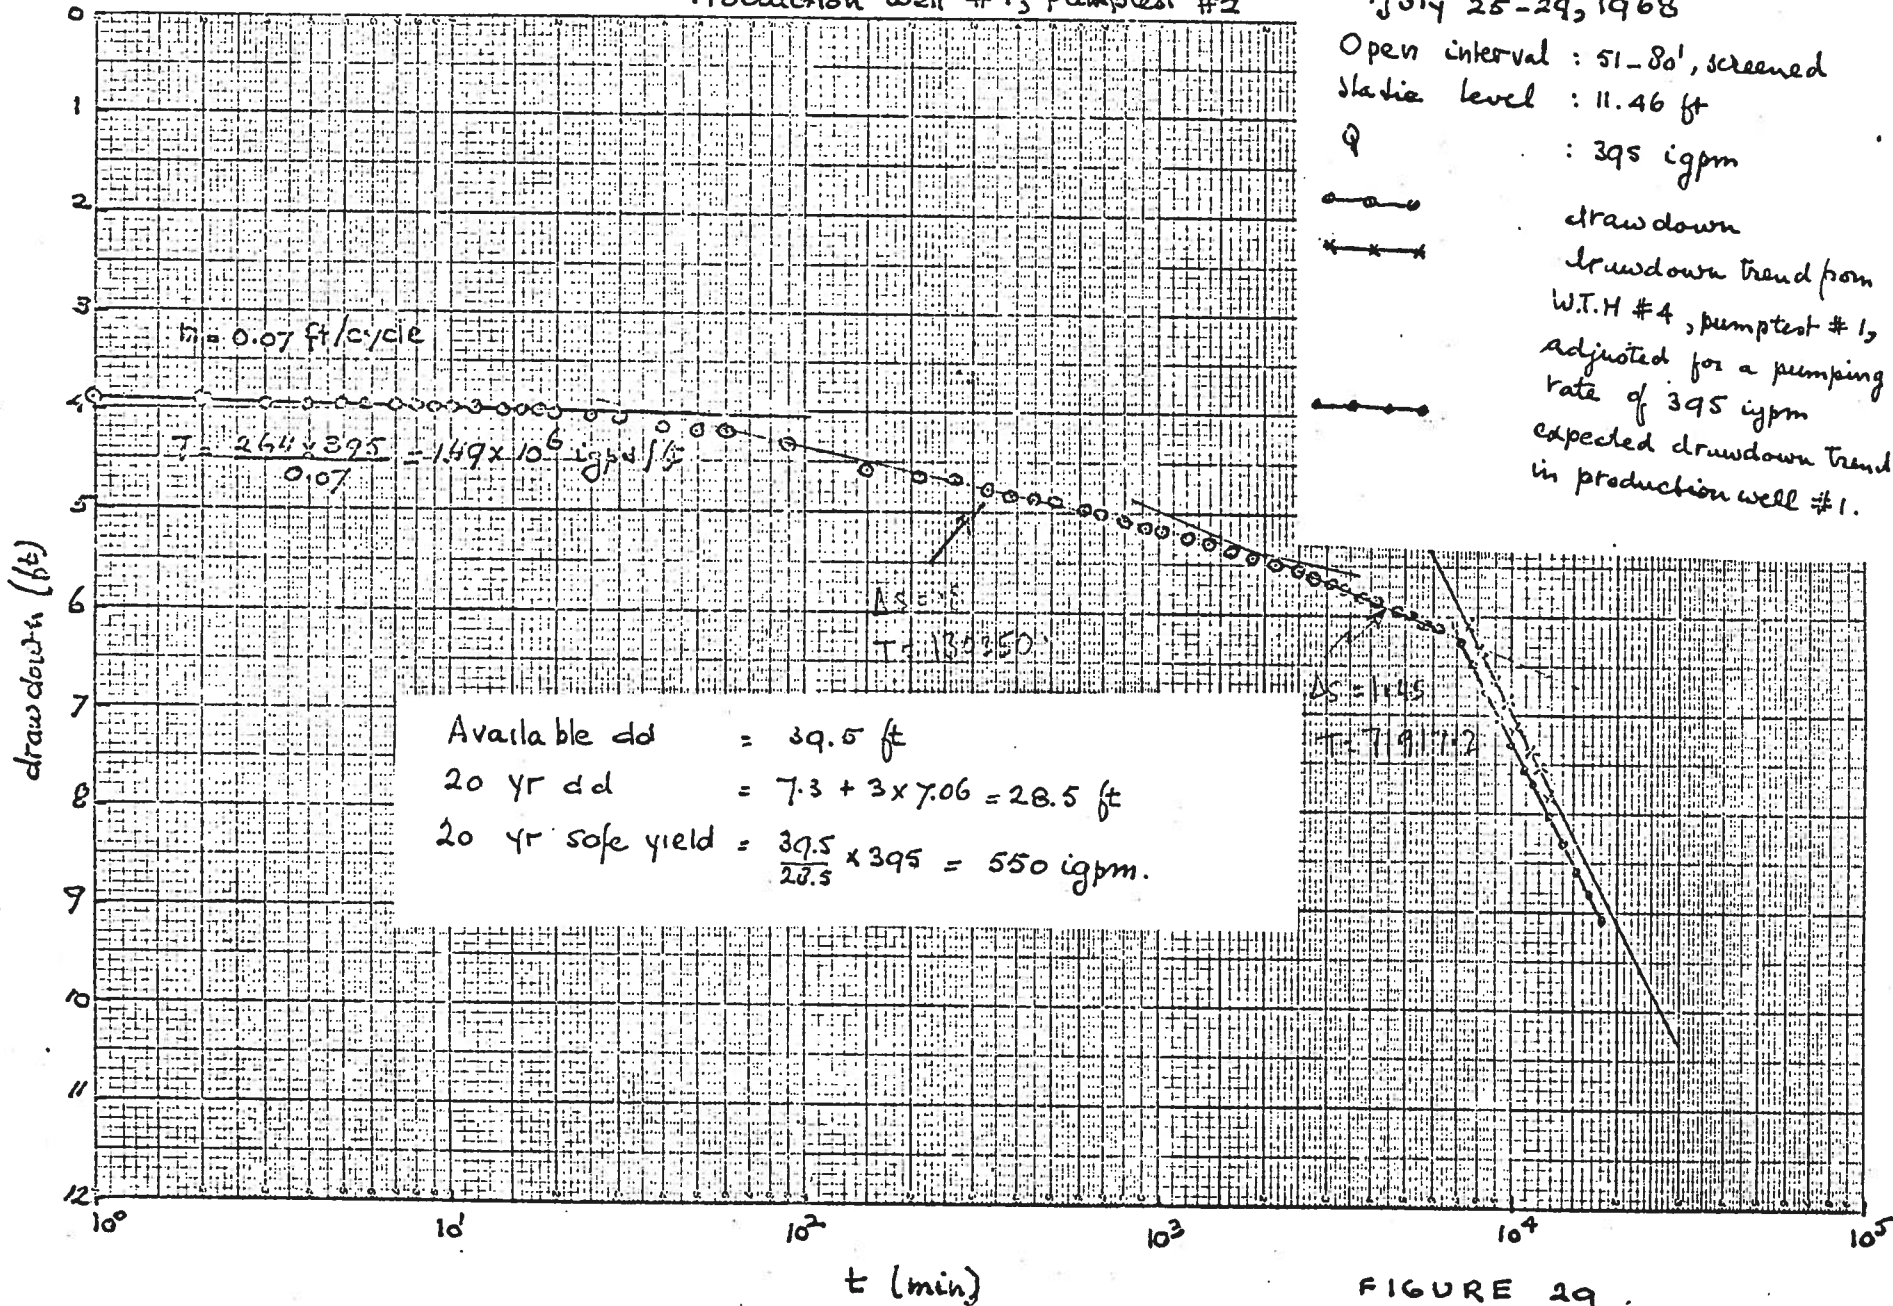 Production well #1, pumptest #2
July 25-29, 1968
Open interval : 51-80', screened
Static level : 11.46 ft
Q : 395 igpm
drawdown
drawdown trend from
W.T.H #4, pumptest #1,
adjusted for a pumping
rate of 395 igpm
expected drawdown trend
in production well #1.
0
1
2
3
4
5
6
7
8
9
10
11
12
drawdown (ft)
m = 0.07 ft/cycle
T = 264 x 395 / 0.07 = 1.49 x 10^6 igpd/ft
ΔS =
T = 130350
ΔS = 1.45
T =
Available dd = 39.5 ft
20 yr dd = 7.3 + 3 x 7.06 = 28.5 ft
20 yr safe yield = 39.5 / 28.5 x 395 = 550 igpm.
10^0
10^1
10^2
10^3
10^4
10^5
t (min)
FIGURE 29.